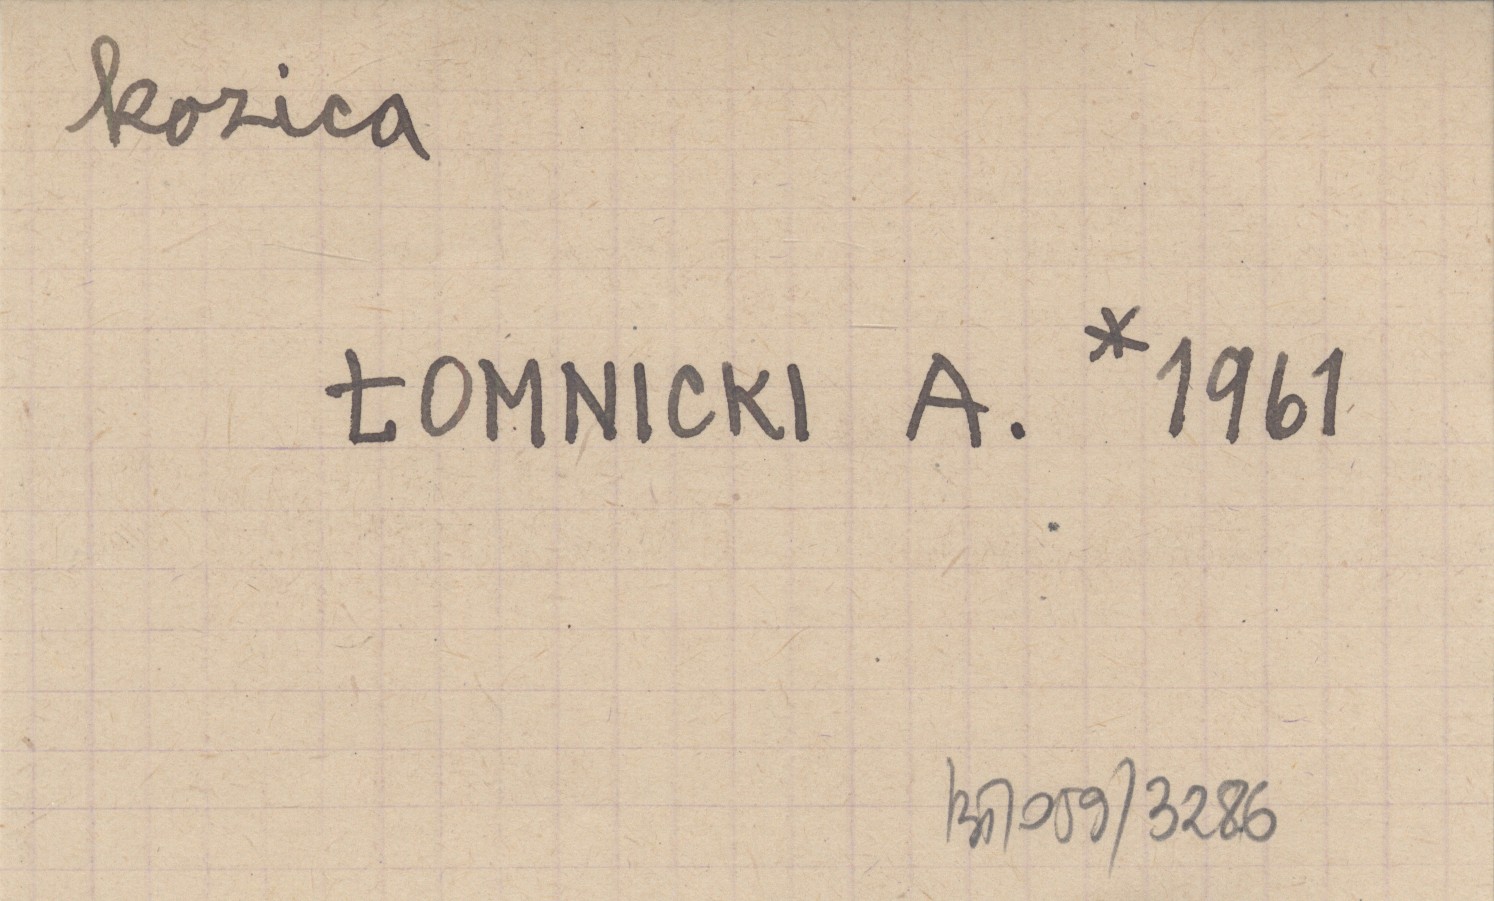 kozica
ŁOMNICKI A. *1961
/3286